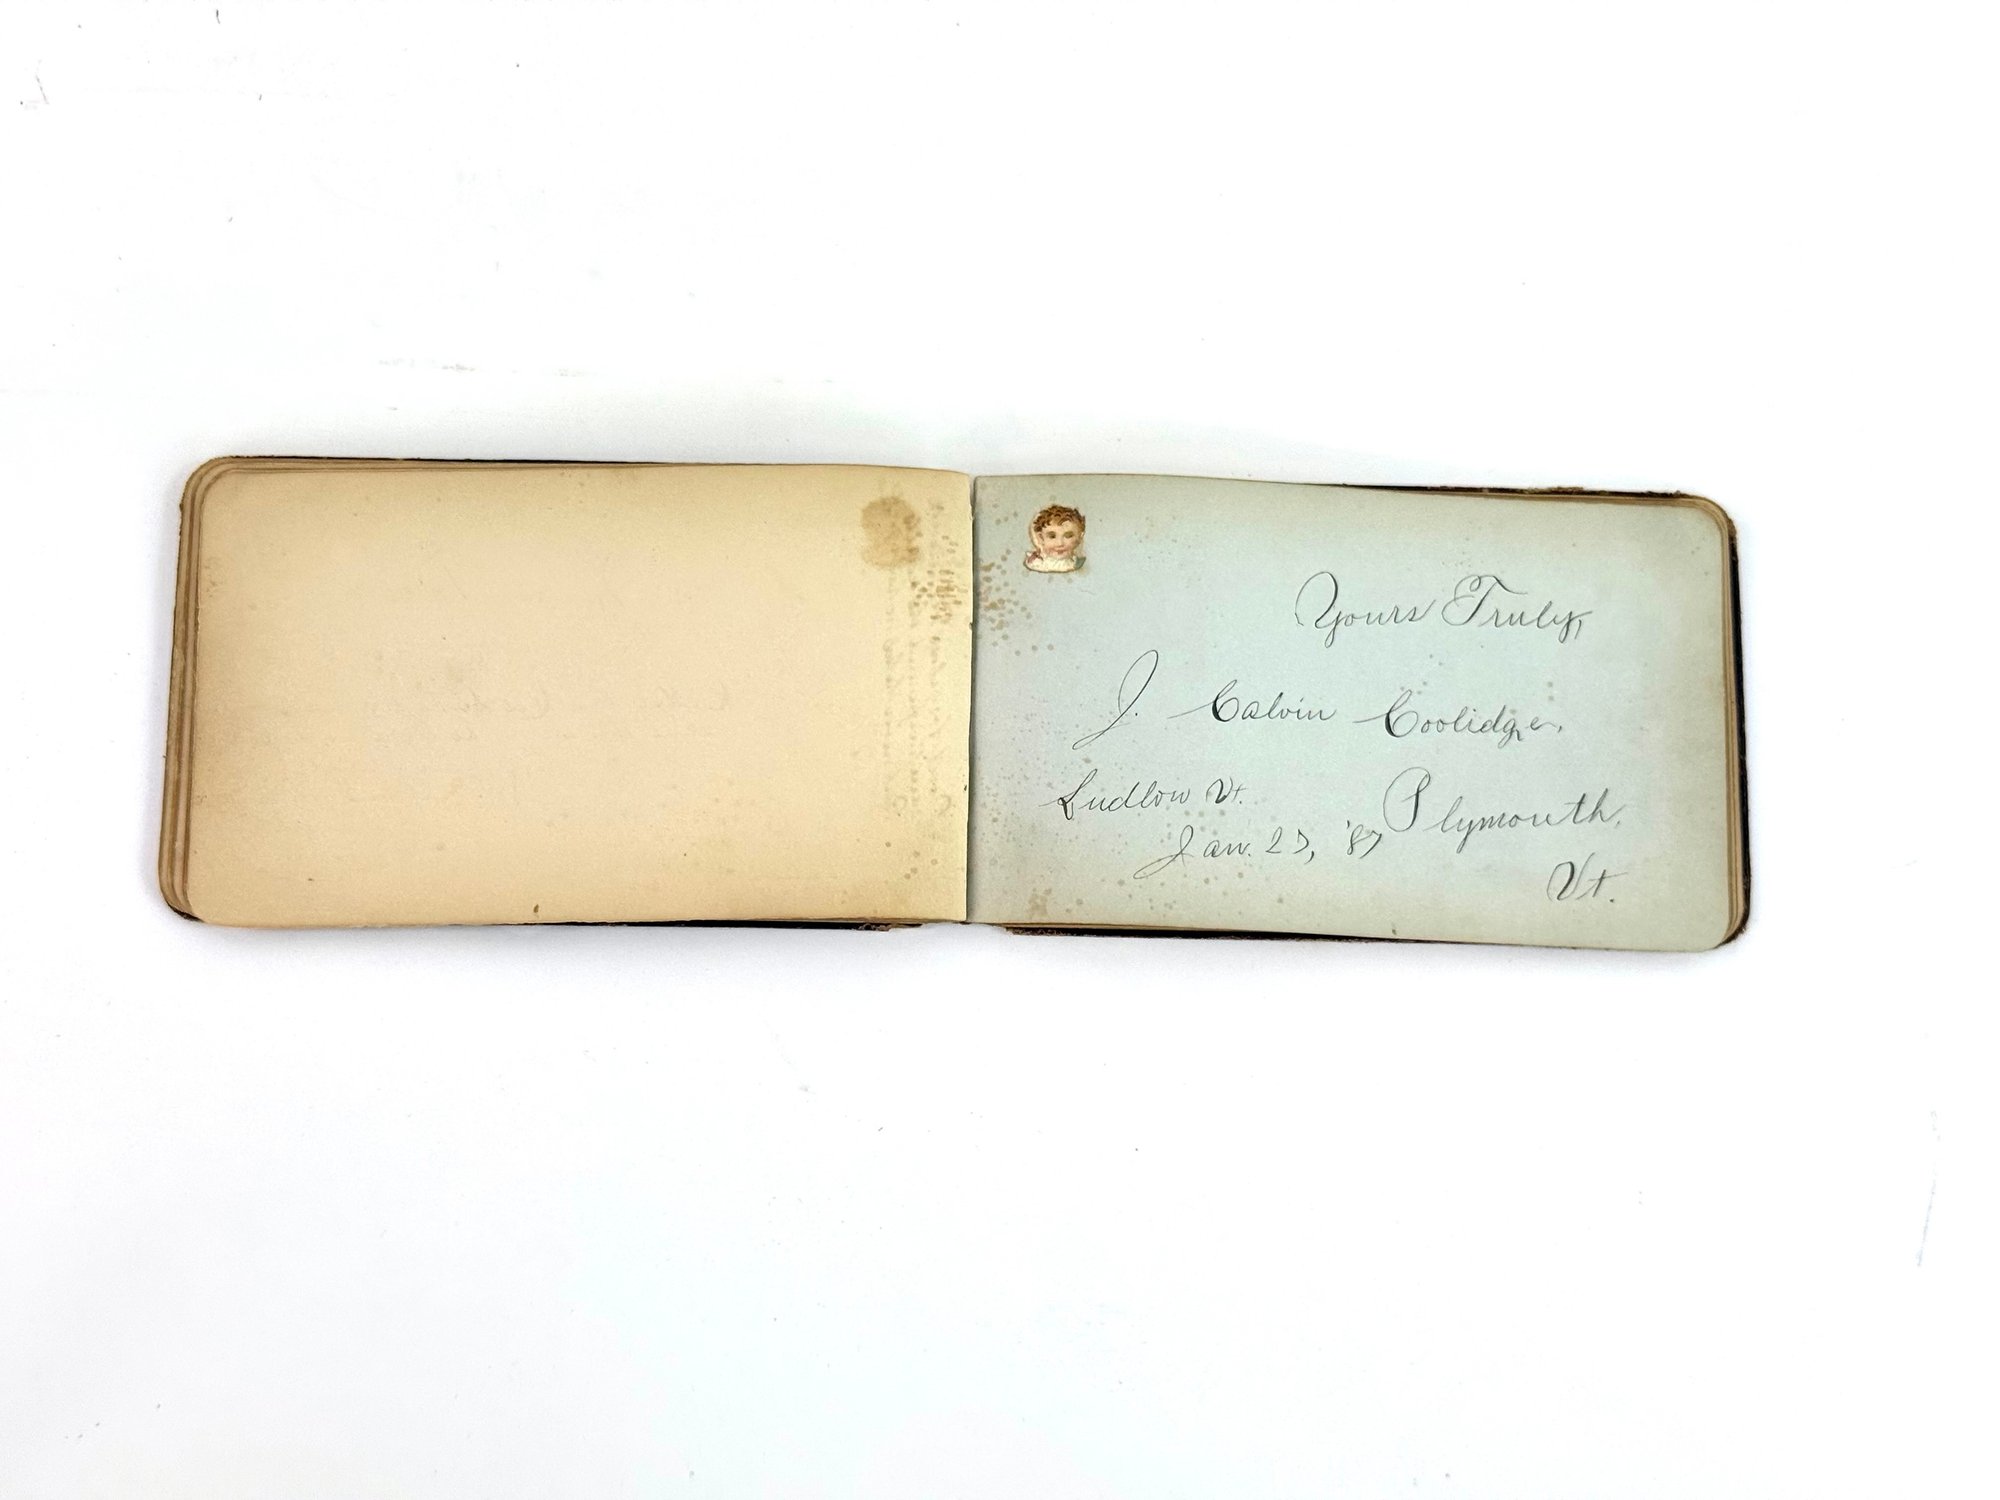 Yours Truly,
J. Calvin Coolidge.
Ludlow Vt.
Jan. 27, '87
Plymouth,
Vt.